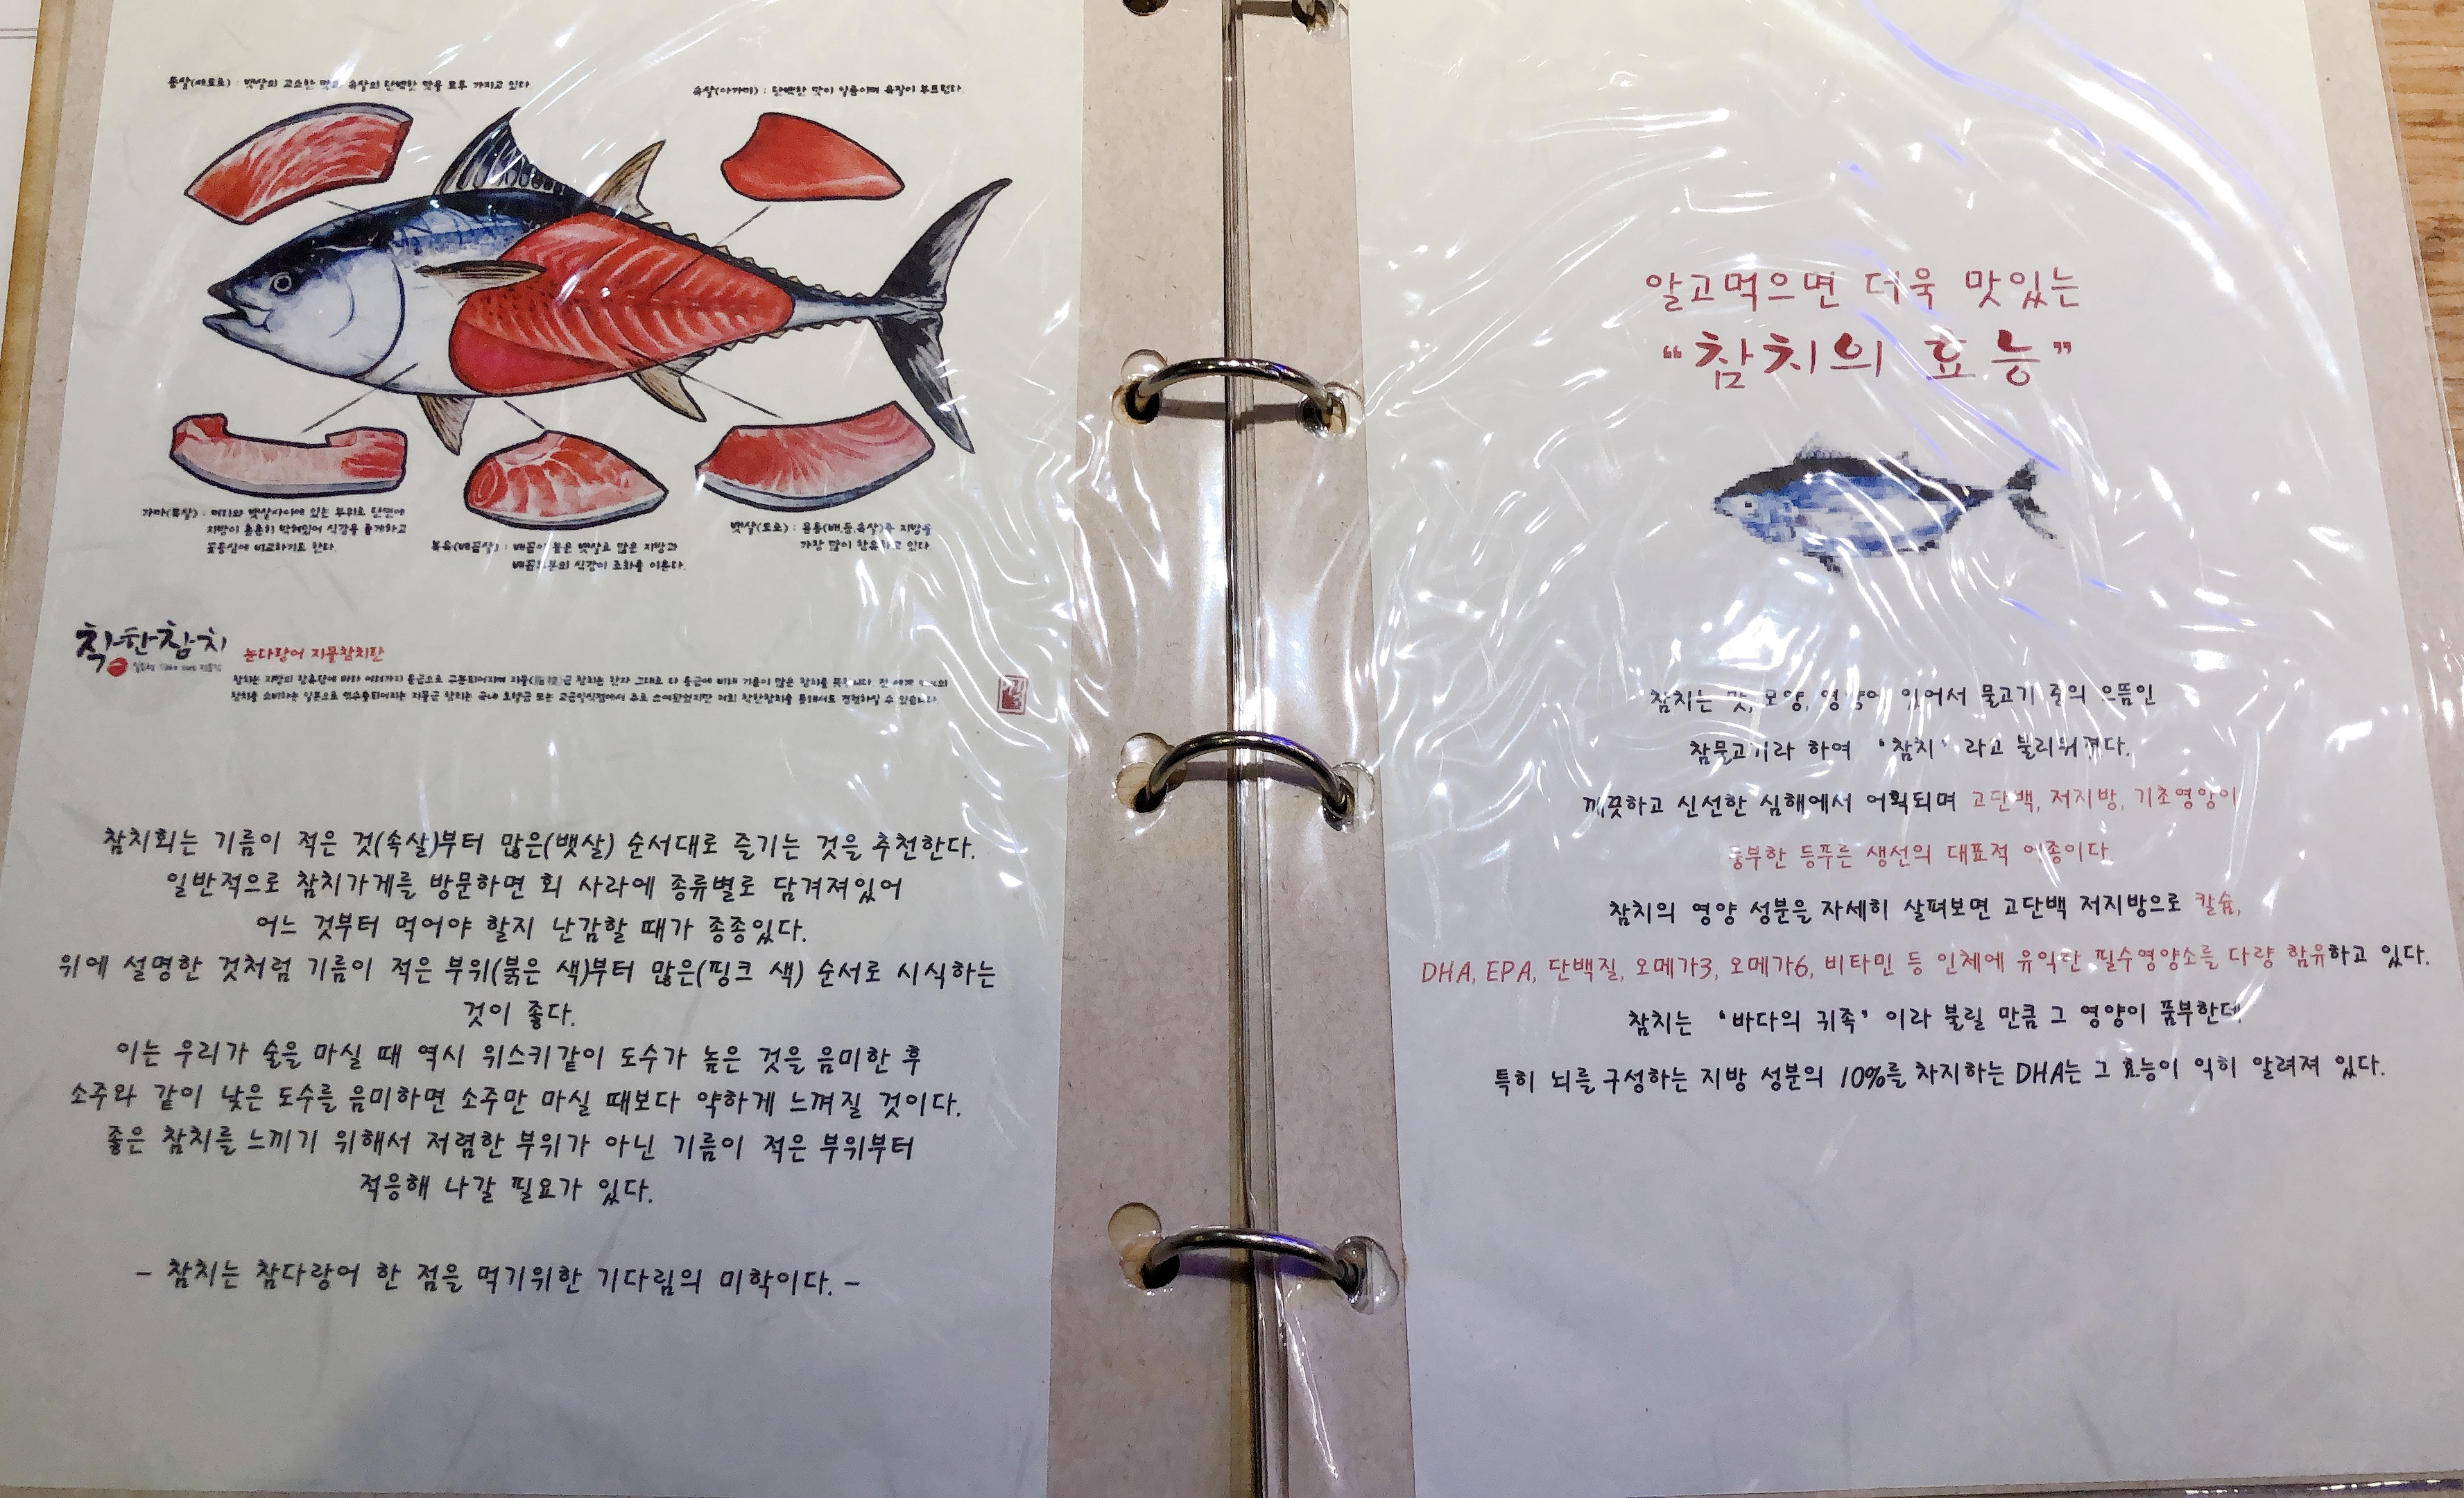 등살(세도로) : 뱃살의 고소한 맛과 속살의 단백한 맛을 모두 가지고 있다
속살(아가미) : 단백한 맛이 일품이며 육질이 부드럽다.
가마(목살) : 머리와 뱃살사이에 있는 부위로 단면에
지방이 촘촘히 박혀있어 식감을 좋게하고
꽃등심에 비교하기도 한다.
복육(배꼽살) : 배꼽이 붙은 뱃살로 많은 지방과
배꼽부분의 식감이 조화를 이룬다.
뱃살(도로) : 몸통(배,등,속살)중 지방을
가장 많이 함유하고 있다.
착한참치
눈다랑어 지물참치란
참치는 지방의 함유량에 따라 여러가지 등급으로 구분되어지며 급 참치는 한자 그대로 타 등급에 비해 기름이 많은 참치를 뜻합니다. 전 세계
참치를 소비하는 일본으로 역수출되어지는 지물급 참치는 국내 호텔급 또는 고급일식점에서 주로 쓰여왔었지만 저희 착한참치를 통해서도 경험하실 수 있습니다.
참치회는 기름이 적은 것(속살)부터 많은(뱃살) 순서대로 즐기는 것을 추천한다.
일반적으로 참치가게를 방문하면 회 사라에 종류별로 담겨져있어
어느 것부터 먹어야 할지 난감할 때가 종종있다.
위에 설명한 것처럼 기름이 적은 부위(붉은 색)부터 많은(핑크 색) 순서로 시식하는
것이 좋다.
이는 우리가 술을 마실 때 역시 위스키같이 도수가 높은 것을 음미한 후
소주와 같이 낮은 도수를 음미하면 소주만 마실 때보다 약하게 느껴질 것이다.
좋은 참치를 느끼기 위해서 저렴한 부위가 아닌 기름이 적은 부위부터
적응해 나갈 필요가 있다.
- 참치는 참다랑어 한 점을 먹기위한 기다림의 미학이다. -
알고먹으면 더욱 맛있는
“참치의 효능”
참치는 맛, 모양, 영양에 있어서 물고기 중의 으뜸인
참물고기라 하여 '참치' 라고 불리워졌다.
깨끗하고 신선한 심해에서 어획되며 고단백, 저지방, 기초영양이
풍부한 등푸른 생선의 대표적 어종이다
참치의 영양 성분을 자세히 살펴보면 고단백 저지방으로 칼슘,
DHA, EPA, 단백질, 오메가3, 오메가6, 비타민 등 인체에 유익한 필수영양소를 다량 함유하고 있다.
참치는 '바다의 귀족' 이라 불릴 만큼 그 영양이 풍부한데
특히 뇌를 구성하는 지방 성분의 10%를 차지하는 DHA는 그 효능이 익히 알려져 있다.